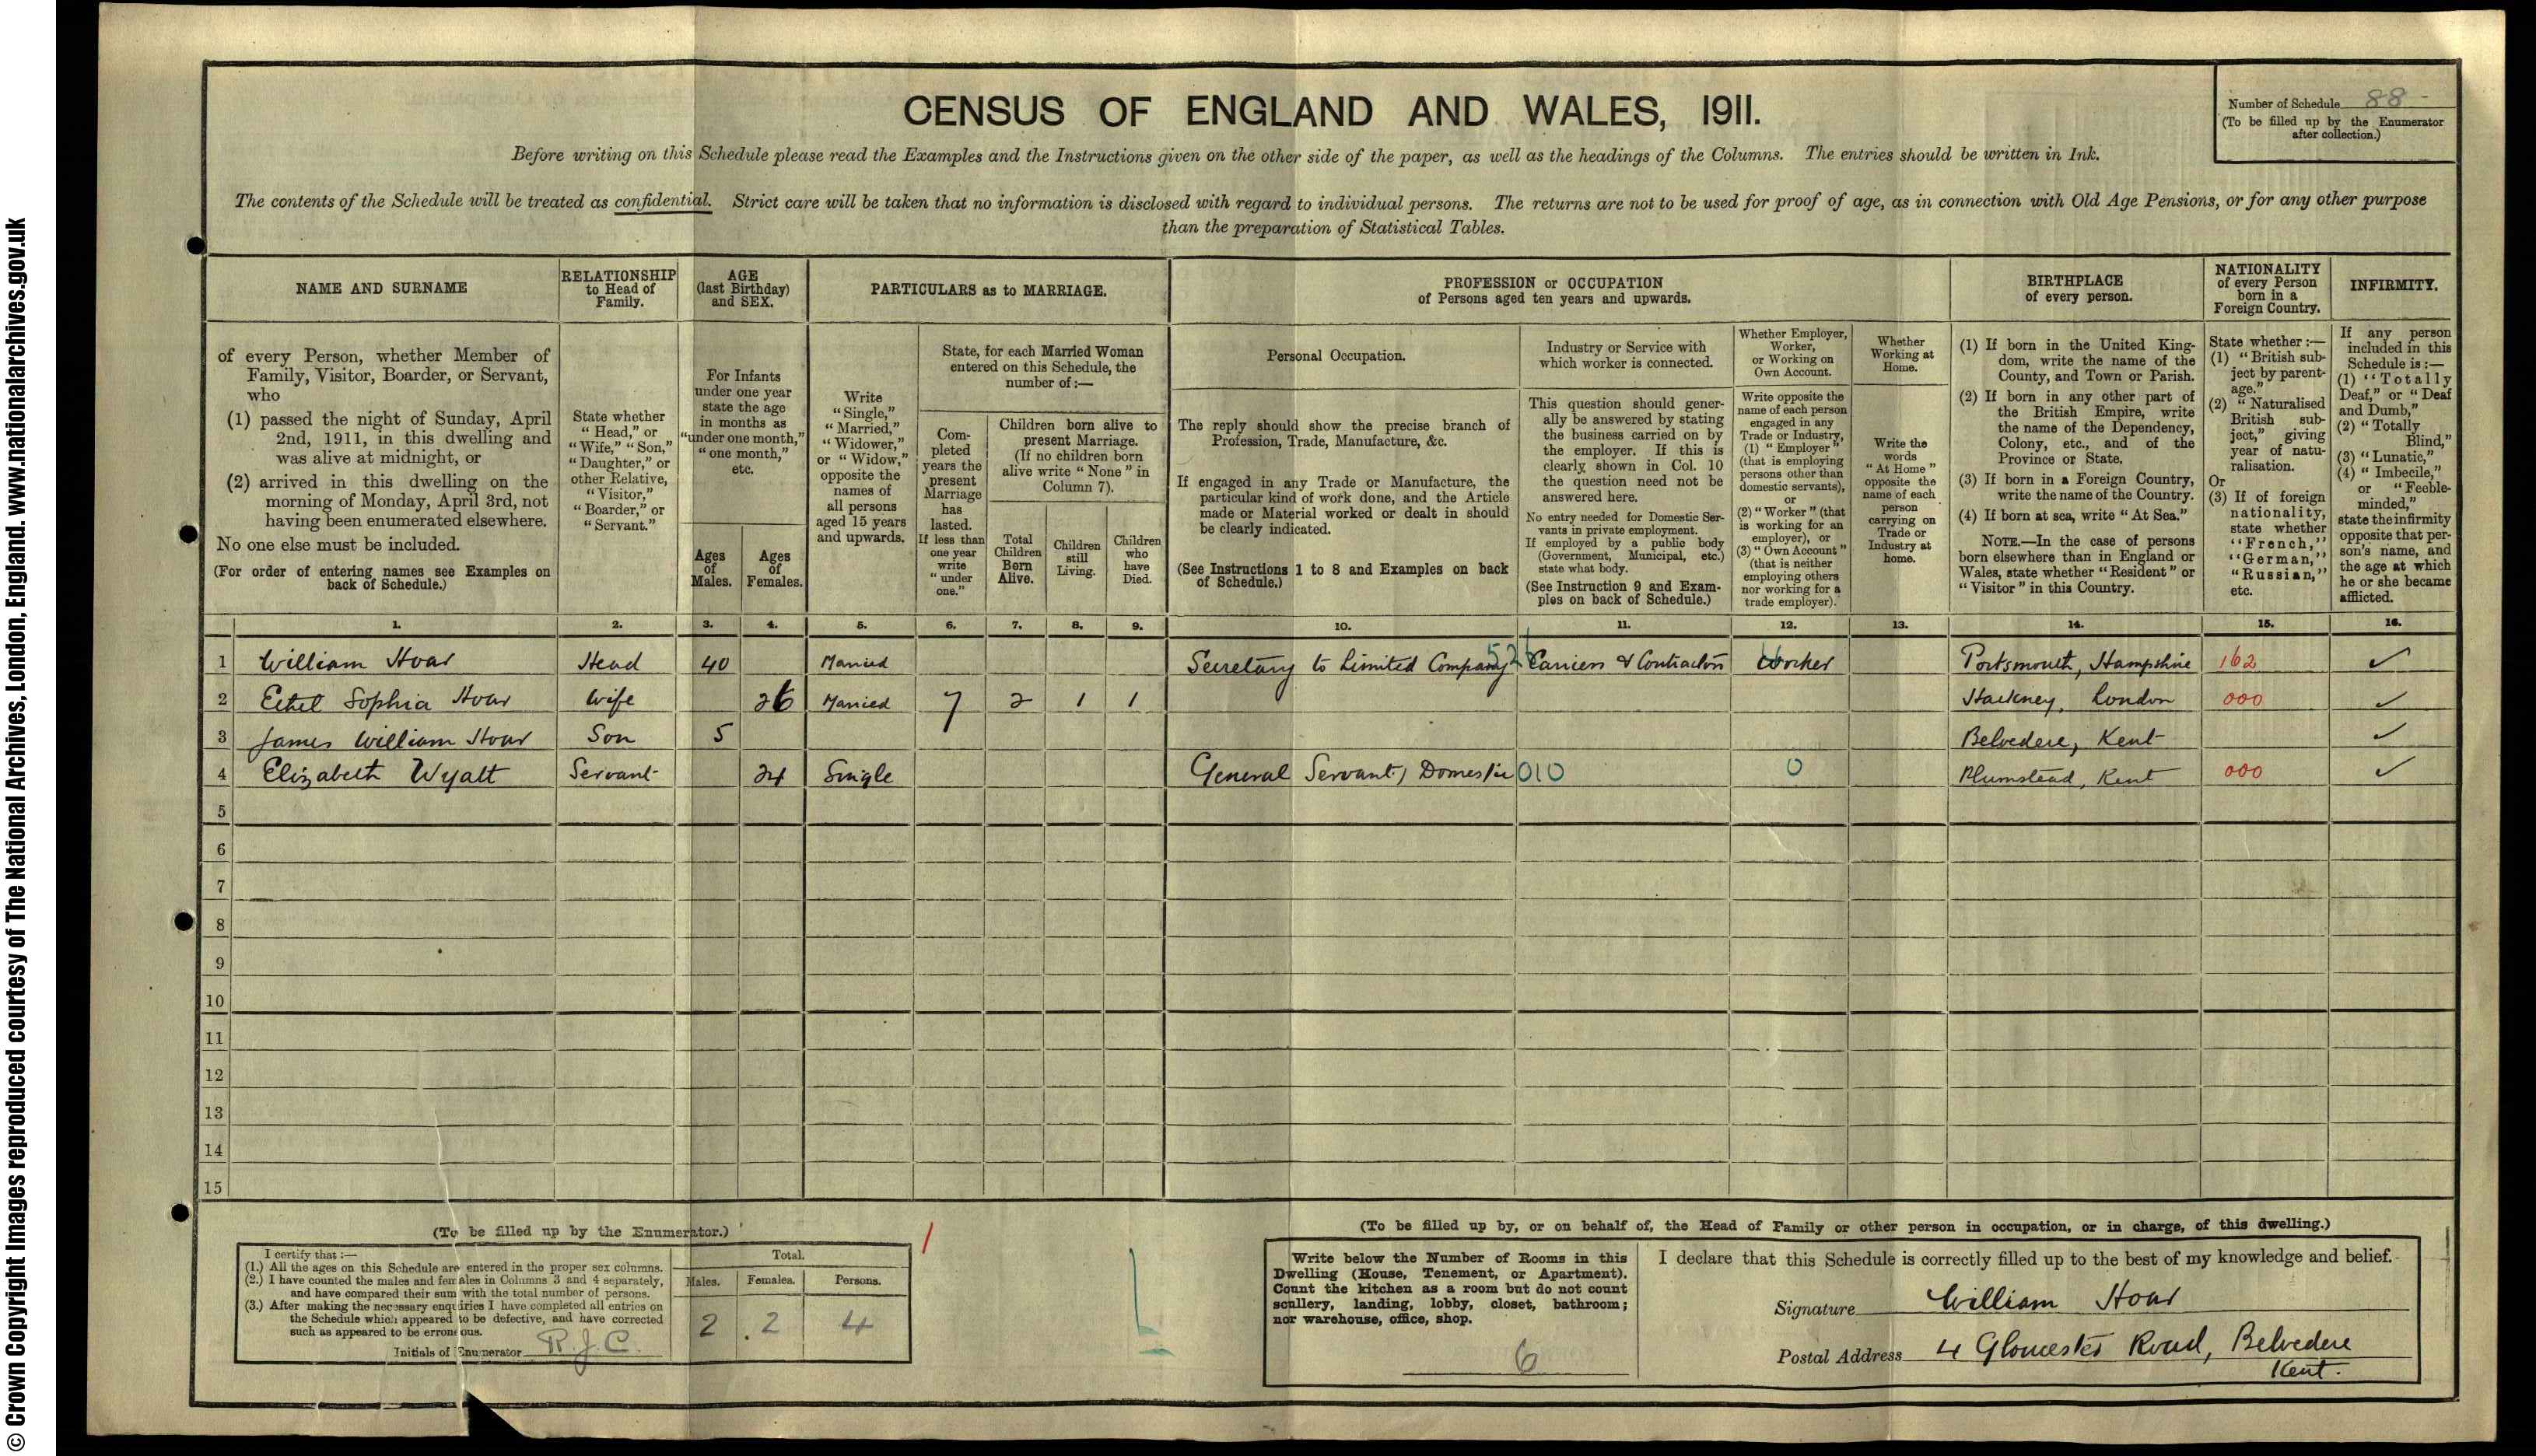 © Crown Copyright Images reproduced courtesy of The National Archives, London, England. www.nationalarchives.gov.uk
CENSUS OF ENGLAND AND WALES, 1911.
Number of Schedule 88
(To be filled up by the Enumerator
after collection.)
Before writing on this Schedule please read the Examples and the Instructions given on the other side of the paper, as well as the headings of the Columns. The entries should be written in Ink.
The contents of the Schedule will be treated as confidential. Strict care will be taken that no information is disclosed with regard to individual persons. The returns are not to be used for proof of age, as in connection with Old Age Pensions, or for any other purpose
than the preparation of Statistical Tables.
NAME AND SURNAME
of every Person, whether Member of
Family, Visitor, Boarder, or Servant,
who
(1) passed the night of Sunday, April
2nd, 1911, in this dwelling and
was alive at midnight, or
(2) arrived in this dwelling on the
morning of Monday, April 3rd, not
having been enumerated elsewhere.
No one else must be included.
(For order of entering names see Examples on
back of Schedule.)
RELATIONSHIP
to Head of
Family.
State whether
"Head," or
"Wife," "Son,"
"Daughter," or
other Relative,
"Visitor,"
"Boarder," or
"Servant."
AGE
(last Birthday)
and SEX.
For Infants
under one year
state the age
in months as
"under one month,"
"one month,"
etc.
Ages
of
Males.
Ages
of
Females.
PARTICULARS as to MARRIAGE.
Write
"Single,"
"Married,"
"Widower,"
or "Widow,"
opposite the
names of
all persons
aged 15 years
and upwards.
State, for each Married Woman
entered on this Schedule, the
number of:—
Com-
pleted
years the
present
Marriage
has
lasted.
If less than
one year
write
"under
one."
Children born alive to
present Marriage.
(If no children born
alive write "None" in
Column 7).
Total
Children
Born
Alive.
Children
still
Living.
Children
who
have
Died.
PROFESSION or OCCUPATION
of Persons aged ten years and upwards.
Personal Occupation.
The reply should show the precise branch of
Profession, Trade, Manufacture, &c.
If engaged in any Trade or Manufacture, the
particular kind of work done, and the Article
made or Material worked or dealt in should
be clearly indicated.
(See Instructions 1 to 8 and Examples on back
of Schedule.)
Industry or Service with
which worker is connected.
This question should gener-
ally be answered by stating
the business carried on by
the employer. If this is
clearly shown in Col. 10
the question need not be
answered here.
No entry needed for Domestic Ser-
vants in private employment.
If employed by a public body
(Government, Municipal, etc.)
state what body.
(See Instruction 9 and Exam-
ples on back of Schedule.)
Whether Employer,
Worker,
or Working on
Own Account.
Write opposite the
name of each person
engaged in any
Trade or Industry,
(1) "Employer"
(that is employing
persons other than
domestic servants),
or
(2) "Worker" (that
is working for an
employer), or
(3) "Own Account"
(that is neither
employing others
nor working for a
trade employer).
Whether
Working at
Home.
Write the
words
"At Home"
opposite the
name of each
person
carrying on
Trade or
Industry at
home.
BIRTHPLACE
of every person.
(1) If born in the United King-
dom, write the name of the
County, and Town or Parish.
(2) If born in any other part of
the British Empire, write
the name of the Dependency,
Colony, etc., and of the
Province or State.
(3) If born in a Foreign Country,
write the name of the Country.
(4) If born at sea, write "At Sea."
NOTE.—In the case of persons
born elsewhere than in England or
Wales, state whether "Resident" or
"Visitor" in this Country.
NATIONALITY
of every Person
born in a
Foreign Country.
State whether:—
(1) "British sub-
ject by parent-
age."
(2) "Naturalised
British sub-
ject," giving
year of natu-
ralisation.
Or
(3) If of foreign
nationality,
state whether
"French,"
"German,"
"Russian,"
etc.
INFIRMITY.
If any person
included in this
Schedule is:—
(1) "Totally
Deaf," or "Deaf
and Dumb,"
(2) "Totally
Blind,"
(3) "Lunatic,"
(4) "Imbecile,"
or "Feeble-
minded,"
state the infirmity
opposite that per-
son's name, and
the age at which
he or she became
afflicted.
1. 2. 3. 4. 5. 6. 7. 8. 9. 10. 11. 12. 13. 14. 15. 16.
1 William Hoar Head 40 Married Secretary to Limited Company Carriers & Contractors Worker Portsmouth, Hampshire 162 ✓
2 Ethel Sophia Hoar Wife 26 Married 7 2 1 1 Hackney, London 000 ✓
3 James William Hoar Son 5 Belvedere, Kent ✓
4 Elizabeth Wyatt Servant 24 Single General Servant, Domestic 010 0 Plumstead, Kent 000 ✓
5
6
7
8
9
10
11
12
13
14
15
(To be filled up by the Enumerator.)
I certify that:—
(1.) All the ages on this Schedule are entered in the proper sex columns.
(2.) I have counted the males and females in Columns 3 and 4 separately,
and have compared their sum with the total number of persons.
(3.) After making the necessary enquiries I have completed all entries on
the Schedule which appeared to be defective, and have corrected
such as appeared to be erroneous.
Initials of Enumerator R.J.C.
Total.
Males. Females. Persons.
2 2 4
(To be filled up by, or on behalf of, the Head of Family or other person in occupation, or in charge, of this dwelling.)
Write below the Number of Rooms in this
Dwelling (House, Tenement, or Apartment).
Count the kitchen as a room but do not count
scullery, landing, lobby, closet, bathroom;
nor warehouse, office, shop.
6
I declare that this Schedule is correctly filled up to the best of my knowledge and belief.
Signature William Hoar
Postal Address 4 Gloucester Road, Belvedere
Kent.